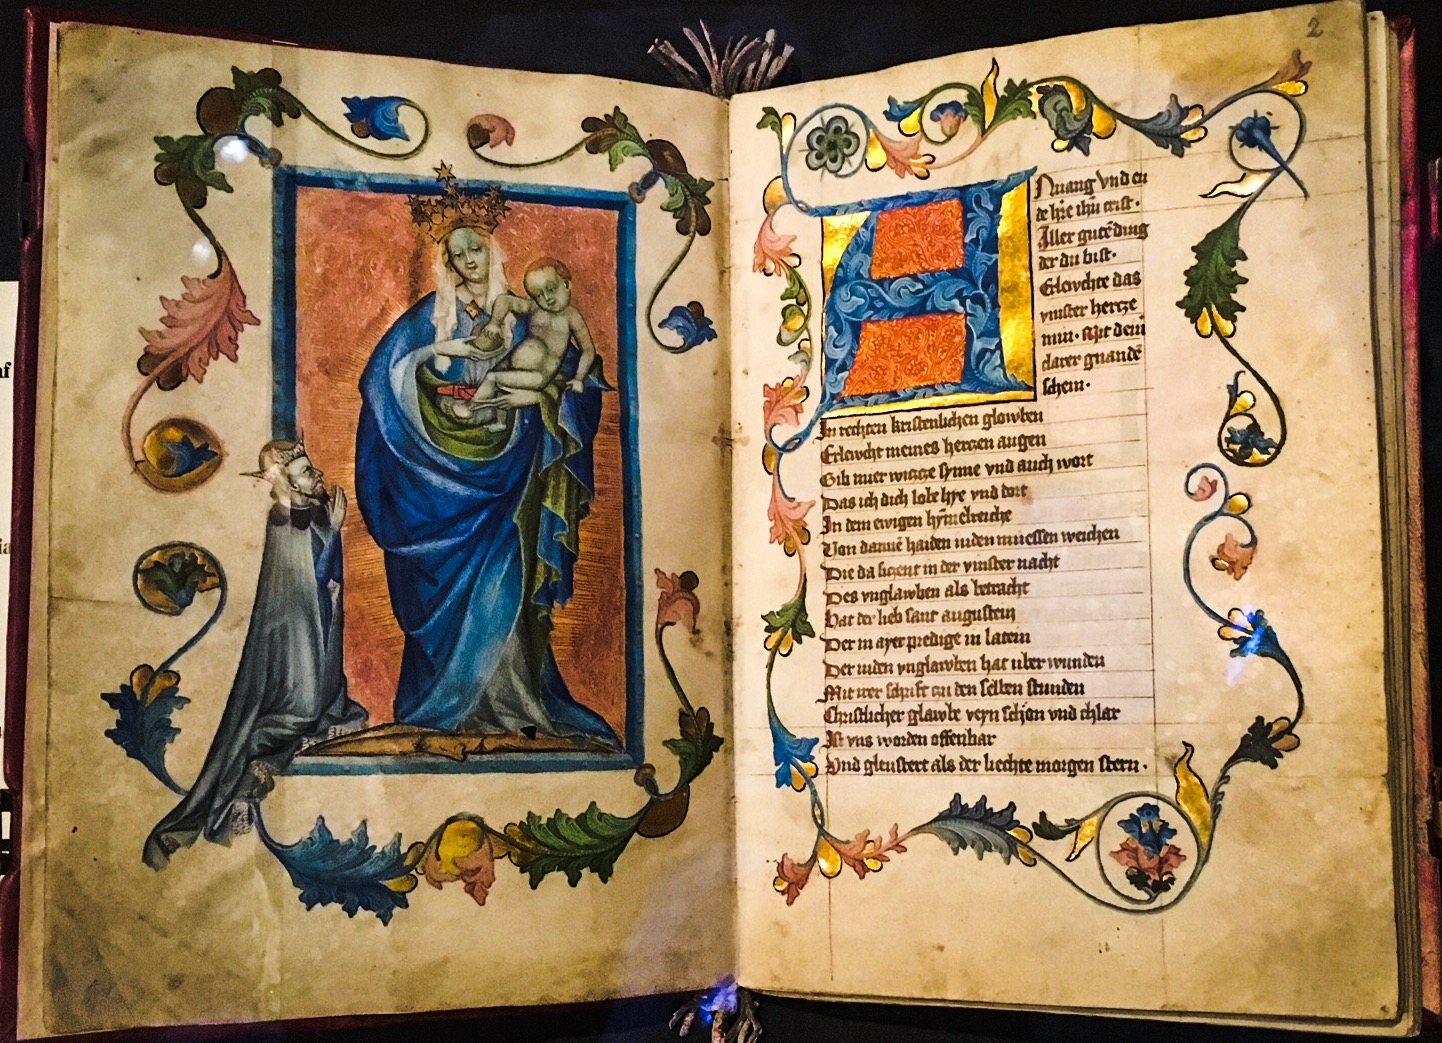 2
Anuang vnd en
de hre ihu crist·
Aller gutẽ ding
der du bist·
Erlewchte das
vinster hercze
min· mit deinͥ
clarer gnandẽ
schein·
In rechten kristenlichen glowben
Erlewcht meines herczen augen
Gib mier wicze synne vnd auch wort
Das ich dich lobe hye vnd dort
In dem ewigen hỹmelreiche
Von dannẽ haiden iuden muessen weichen
Die da siczent in der vinster nacht
Des vnglawben als betracht
Hat der lieb sant augustein
Der in ayer predige in latein
Der iuden vnglawben hat uber wunden
Mit irer schrift czu den selben stunden
Christlicher glawbe vern schon vnd chlar
Ist vns worden offenbar
Vnd gleustert als der liechte morgen stern·